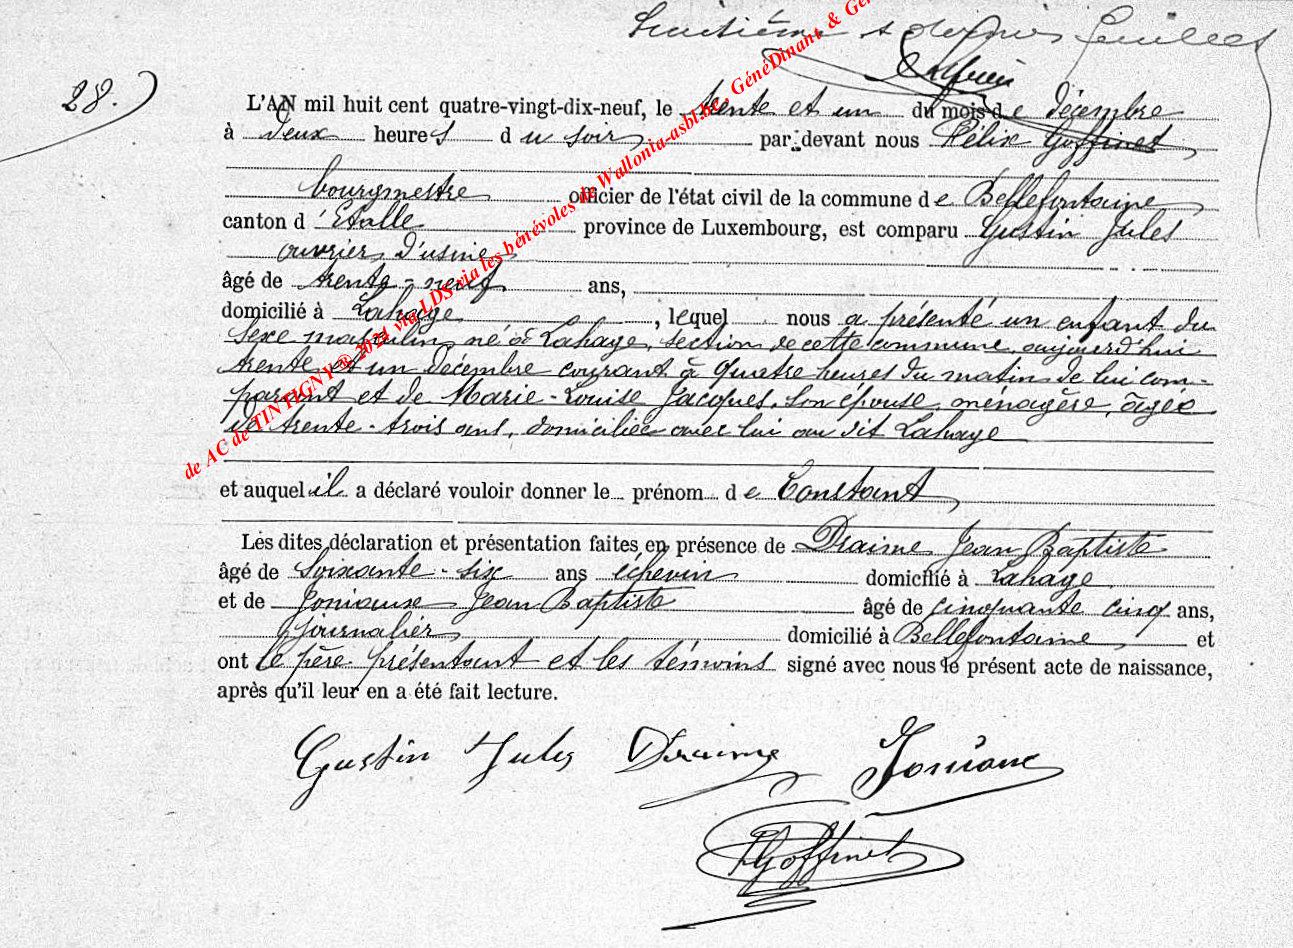 huitième et dernier feuillet
28.
L'AN mil huit cent quatre-vingt-dix-neuf, le trente et un du mois de décembre
à deux heures du soir par devant nous Félix Goffinet
bourgmestre officier de l'état civil de la commune de Bellefontaine
canton d'Etalle province de Luxembourg, est comparu Gustin Jules
ouvrier d'usine
âgé de trente-neuf ans,
domicilié à Lahage, lequel nous a présenté un enfant du
sexe masculin né à Lahage, section de cette commune, aujourd'hui
trente et un décembre courant à quatre heures du matin de lui com-
parant et de Marie-Louise Jacques, son épouse, ménagère, âgée
de trente-trois ans, domiciliée avec lui au dit Lahage
et auquel il a déclaré vouloir donner le prénom de Constant
Les dites déclaration et présentation faites en présence de Draime Jean Baptiste
âgé de soixante-six ans échevin domicilié à Lahage
et de Joniaux Jean Baptiste âgé de cinquante cinq ans,
journalier domicilié à Bellefontaine et
ont le père présentant et les témoins signé avec nous le présent acte de naissance,
après qu'il leur en a été fait lecture.
Gustin Jules Draime
Goffinet
de AC de TINTIGNY ® 2024 via LDS via les bénévoles de Wallonia-asbl.be, GénéDinant & Gé